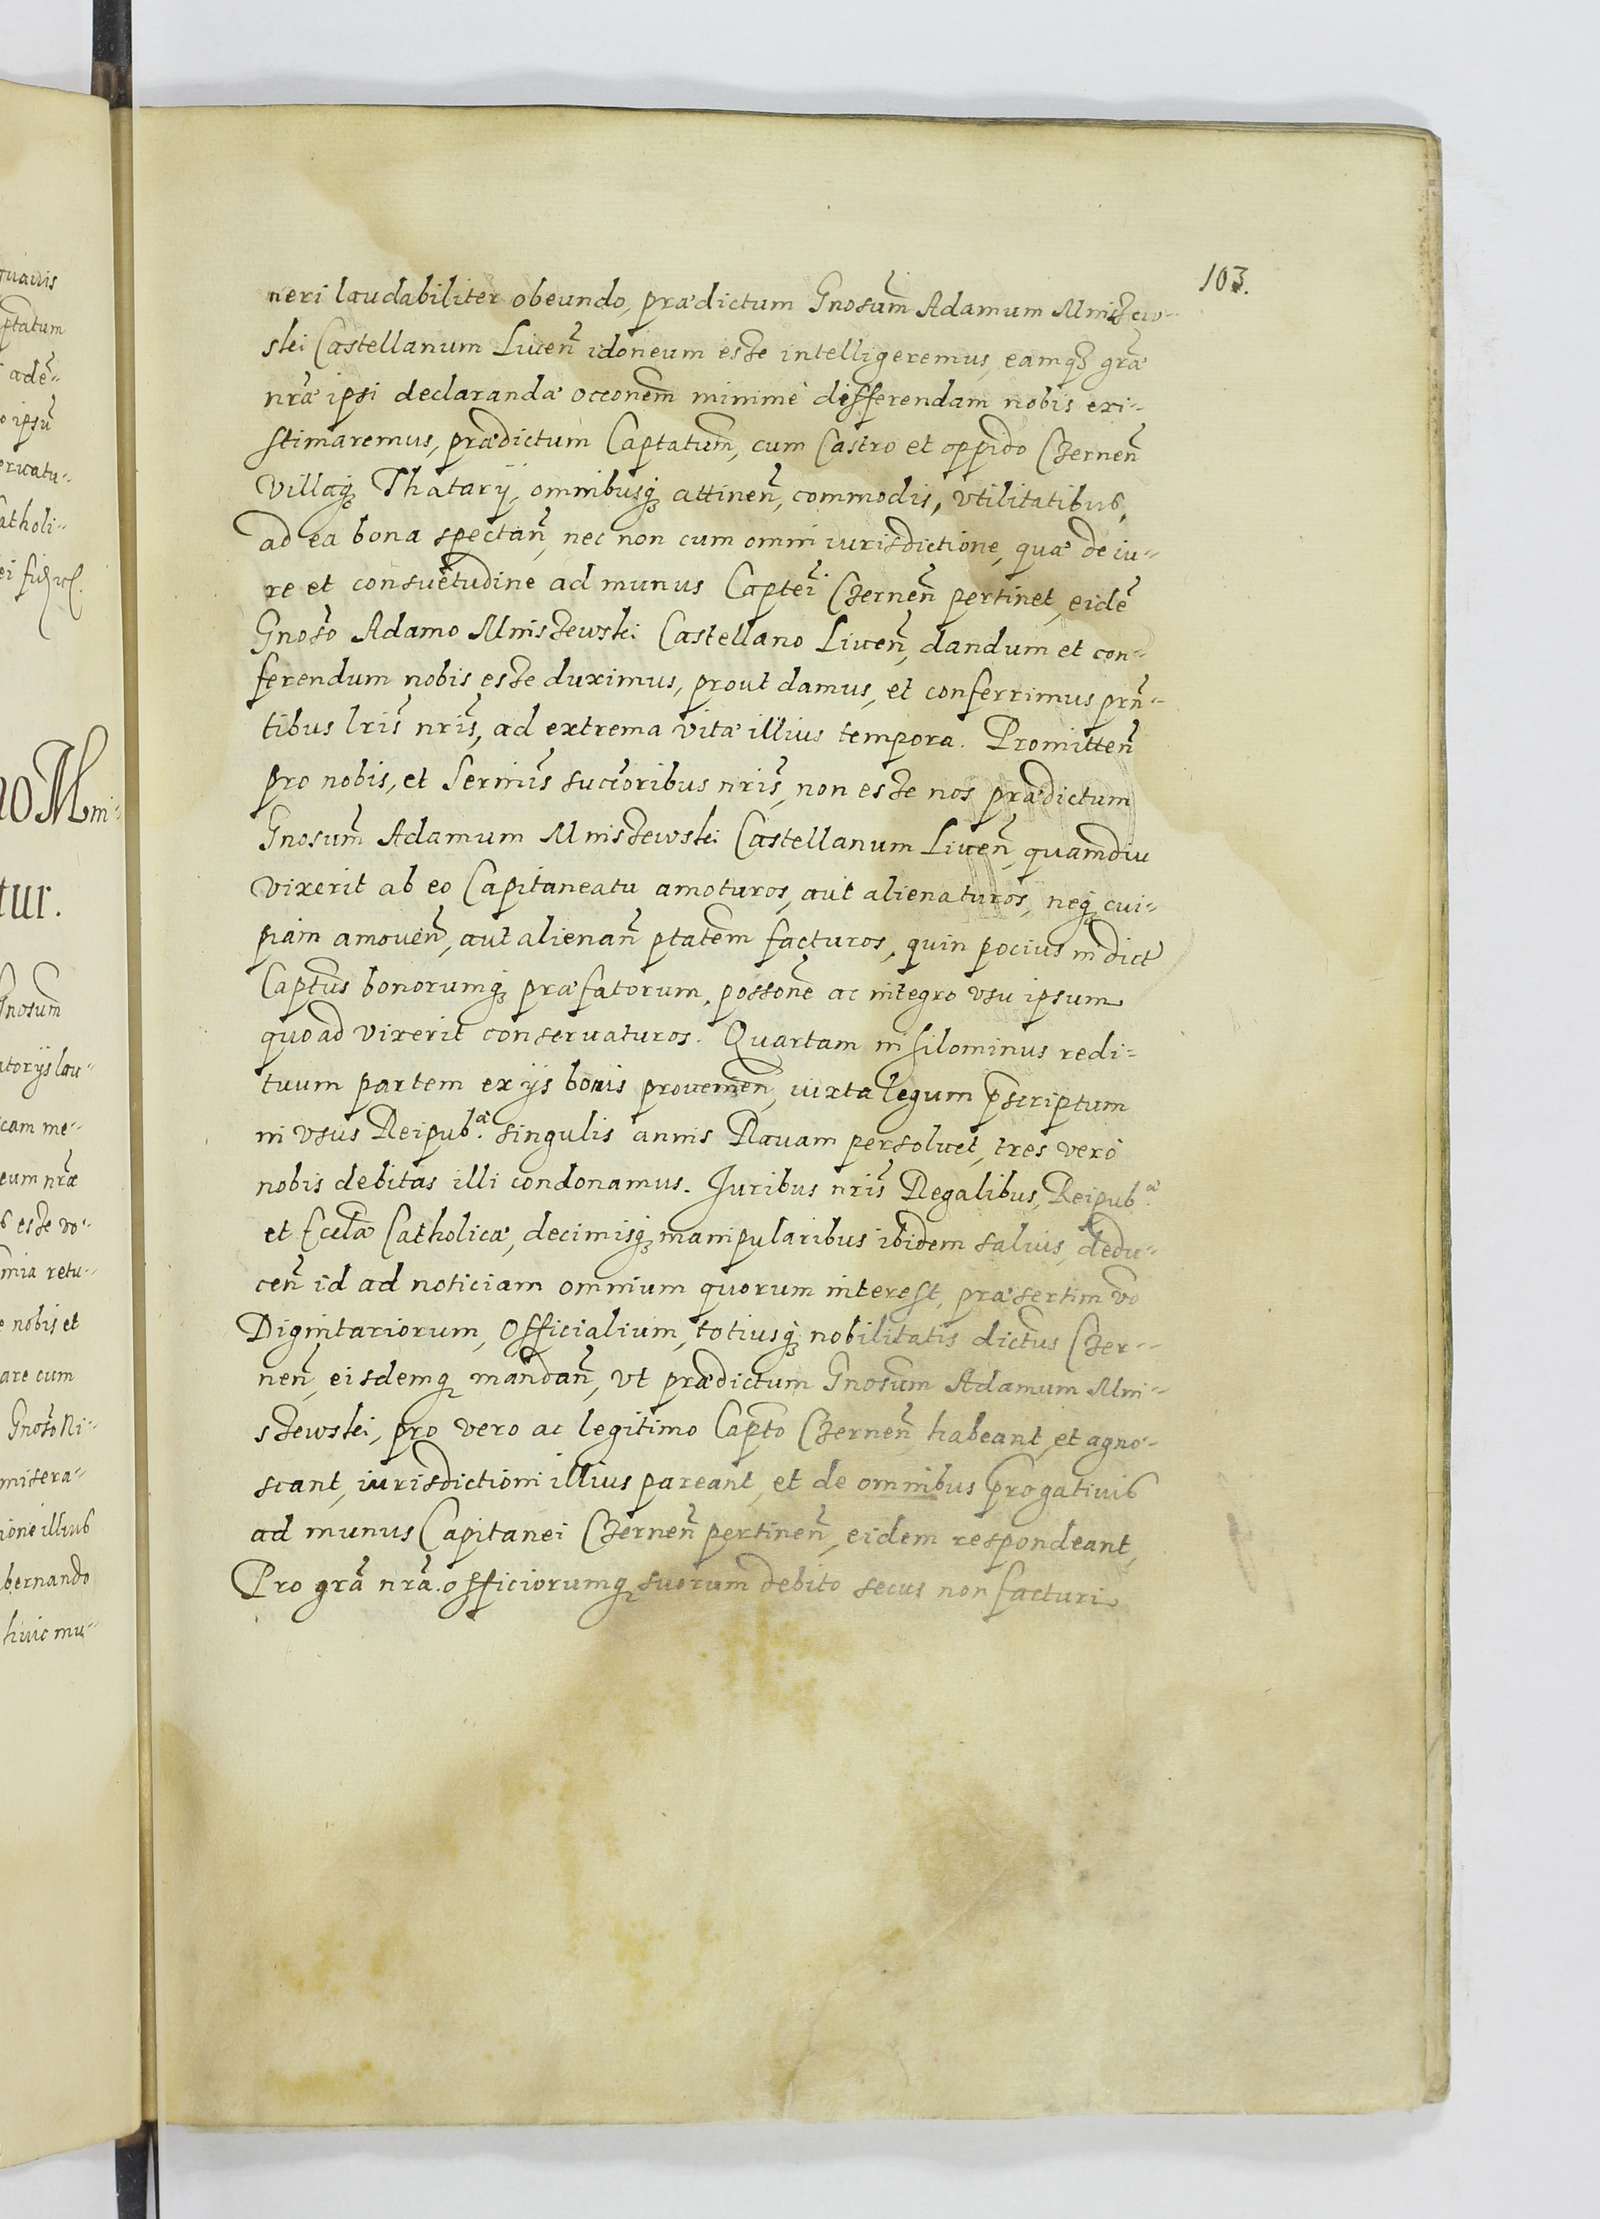 103.
neri laudabiliter obeundo, prædictum Gnosum̃ Adamum Mniszew-
ski Castellanum Liuen̄ idoneum esse intelligeremus, eamq̃ grãæ
nrãæ ipsi declarandæ occonem̃ minimè differendam nobis exi-
stimaremus, prædictum Captatum̃, cum Castro et oppido Czernen̄
Villaq̃ Thatarÿ, omnibusq̃ attinen̄, commodis, vtilitatibus,
ad ea bona spectan̄, nec non cum omni iurisdictione, quæ de iu-
re et consuetudine ad munus Captei̇̃ Czernen̄ pertinet, eidẽ
Gnoso᷉ Adamo Mniszewski Castellano Liuen̄, dandum et con-
ferendum nobis esse duximus, prout damus, et conferrimus prñ-
tibus lris̃ nris̃, ad extrema vitæ illius tempora. Promitten̄
pro nobis, et Sermis̃ succoribus nris̃, non esse nos prædictum
Gnosum̃ Adamum Mniszewski Castellanum Liuen̄, quamdiu
vixerit ab eo Capitaneatu amoturos, aut alienaturos, neq̃ cui-
piam amouen̄, aut alienan̄ ptatem̃ facturos, quin pocius in dict̃
Captus̃ bonorumq̃ præfatorum, possonẽ ac integro vsu ipsum
quoad vixerit conseruaturos. Quartam nihilominus redi-
tuum partem ex ijs bonis prouenien̄, iuxta legum p̃scriptum
in vsus Reipub.æ singulis annis Rauam persoluet, tres verò
nobis debitas illi condonamus. Iuribus nris̃ Regalibus, Reipub.æ
et Eccĩæ Catholicæ, decimisq̃ manipularibus ibidem saluis, dedu-
cen̄ id ad noticiam omnium quorum interest, præsertim vo᷉
Dignitariorum, Officialium, totiusq̃ nobilitatis dictus̃ Czer-
nen̄, eisdemq̃ mandan̄, vt prædictum Gnosum̃ Adamum Mni-
szewski, pro vero ac legitimo Capto᷉ Czernen̄ habeant, et agno-
scant, iurisdictioni illius pareant, et de omnibus p̃rogatiuis
ad munus Capitanei Czernen̄ pertinen̄, eidem respondeant,
Pro grã nrã. officiorumq̃ suorum debito secus non facturi